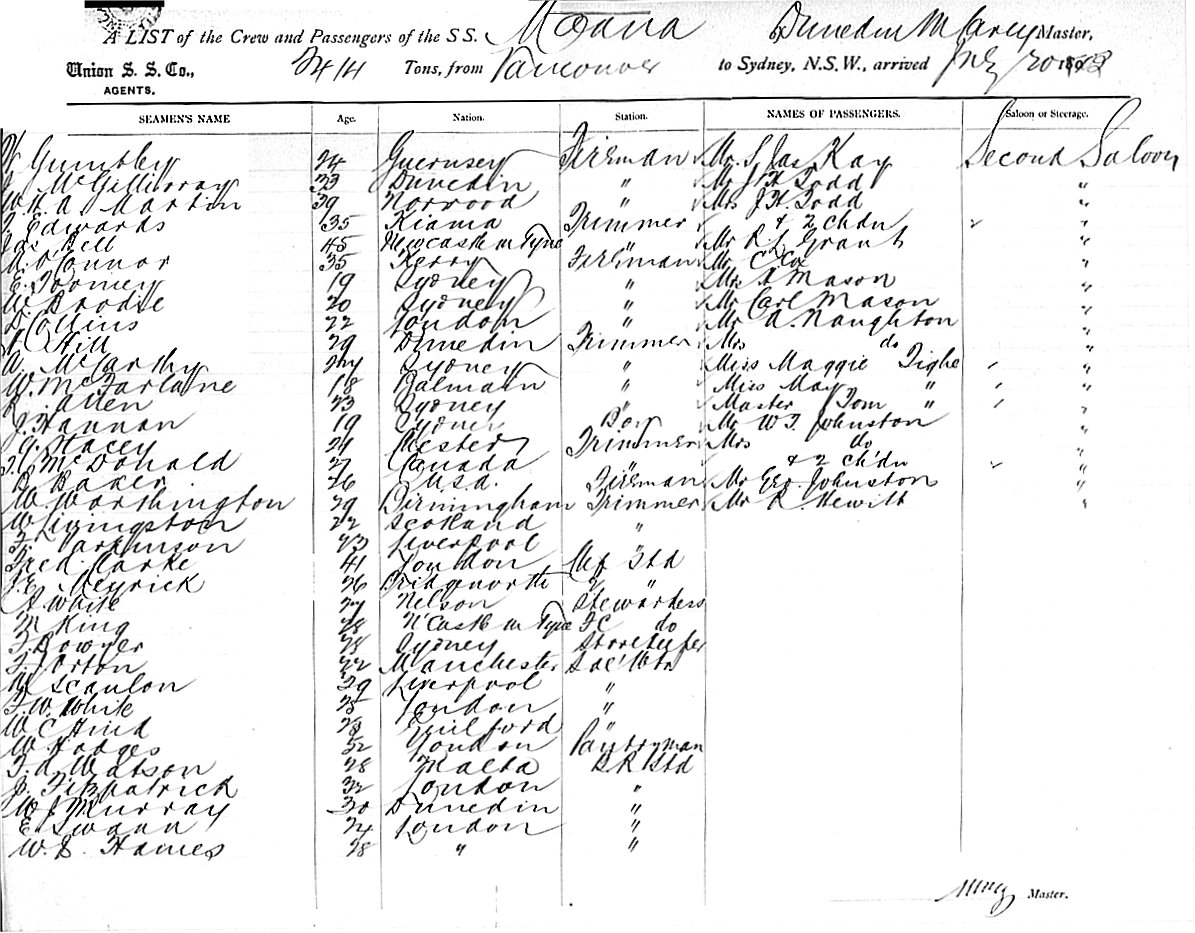 A LIST of the Crew and Passengers of the S S. Moana Dunedin M Carey Master,
Union S. S. Co., Tons, from Vancouver to Sydney, N.S.W., arrived July 20
AGENTS.
SEAMEN'S NAME Age. Nation. Station. NAMES OF PASSENGERS. Saloon or Steerage.
Gumbley 24 Guernsey Fireman Mr. S. Jas Kay Second Saloon
J McGillivray 33 Dunedin " Mr J H Todd "
W. H. A. Martin 39 Norwood " Mrs J H Todd "
J Edwards 35 Kiama Trimmer & 2 chdn "
Jas Bell 45 Newcastle on Tyne " Mr R L Grant "
A. O'Connor 35 Kerry Fireman Mr C Cox "
E. Toomey 19 Sydney " Mrs A Mason "
W. Brodie 20 Sydney " Mr Carl Mason "
D Collins 22 London " Mr A. Naughton "
Hill 29 Dunedin Trimmer Mrs do "
A. McCarthy Sydney " Miss Maggie Tighe "
W. McFarlane 18 Balmain " Miss May " "
Allen 23 Sydney " Master Tom " "
J. Hannan 19 Sydney Boy Mr W T Johnston "
G. Stacey 21 Chester Trimmer Mrs do "
McDonald 27 Canada " & 2 ch'dn "
B Baker 26 U.S.A. Fireman Mr Geo Johnston "
W Worthington 29 Birmingham Trimmer Mr R. Hewitt "
W Livingston 22 Scotland "
Parkinson 23 Liverpool "
Fred Clarke 41 London Chf Std
J. E. Meyrick 26 Bridgenorth 2 "
A. White 27 Nelson Stewardess
M King 28 N'Castle on Tyne FC do
F. Bowyer 28 Sydney Storekeeper
F. Orton 22 Manchester Sal' Wtr
M Scanlon 29 Liverpool "
F. W. White 25 London "
W C Hind 28 Guilford "
W Hodges 52 London Pantryman
F. A. Watson 28 Malta B.R Std
J. Fitzpatrick 32 London "
W J Murray 30 Dunedin "
E Swann 24 London "
W. S. Hames 28 " "
Master.